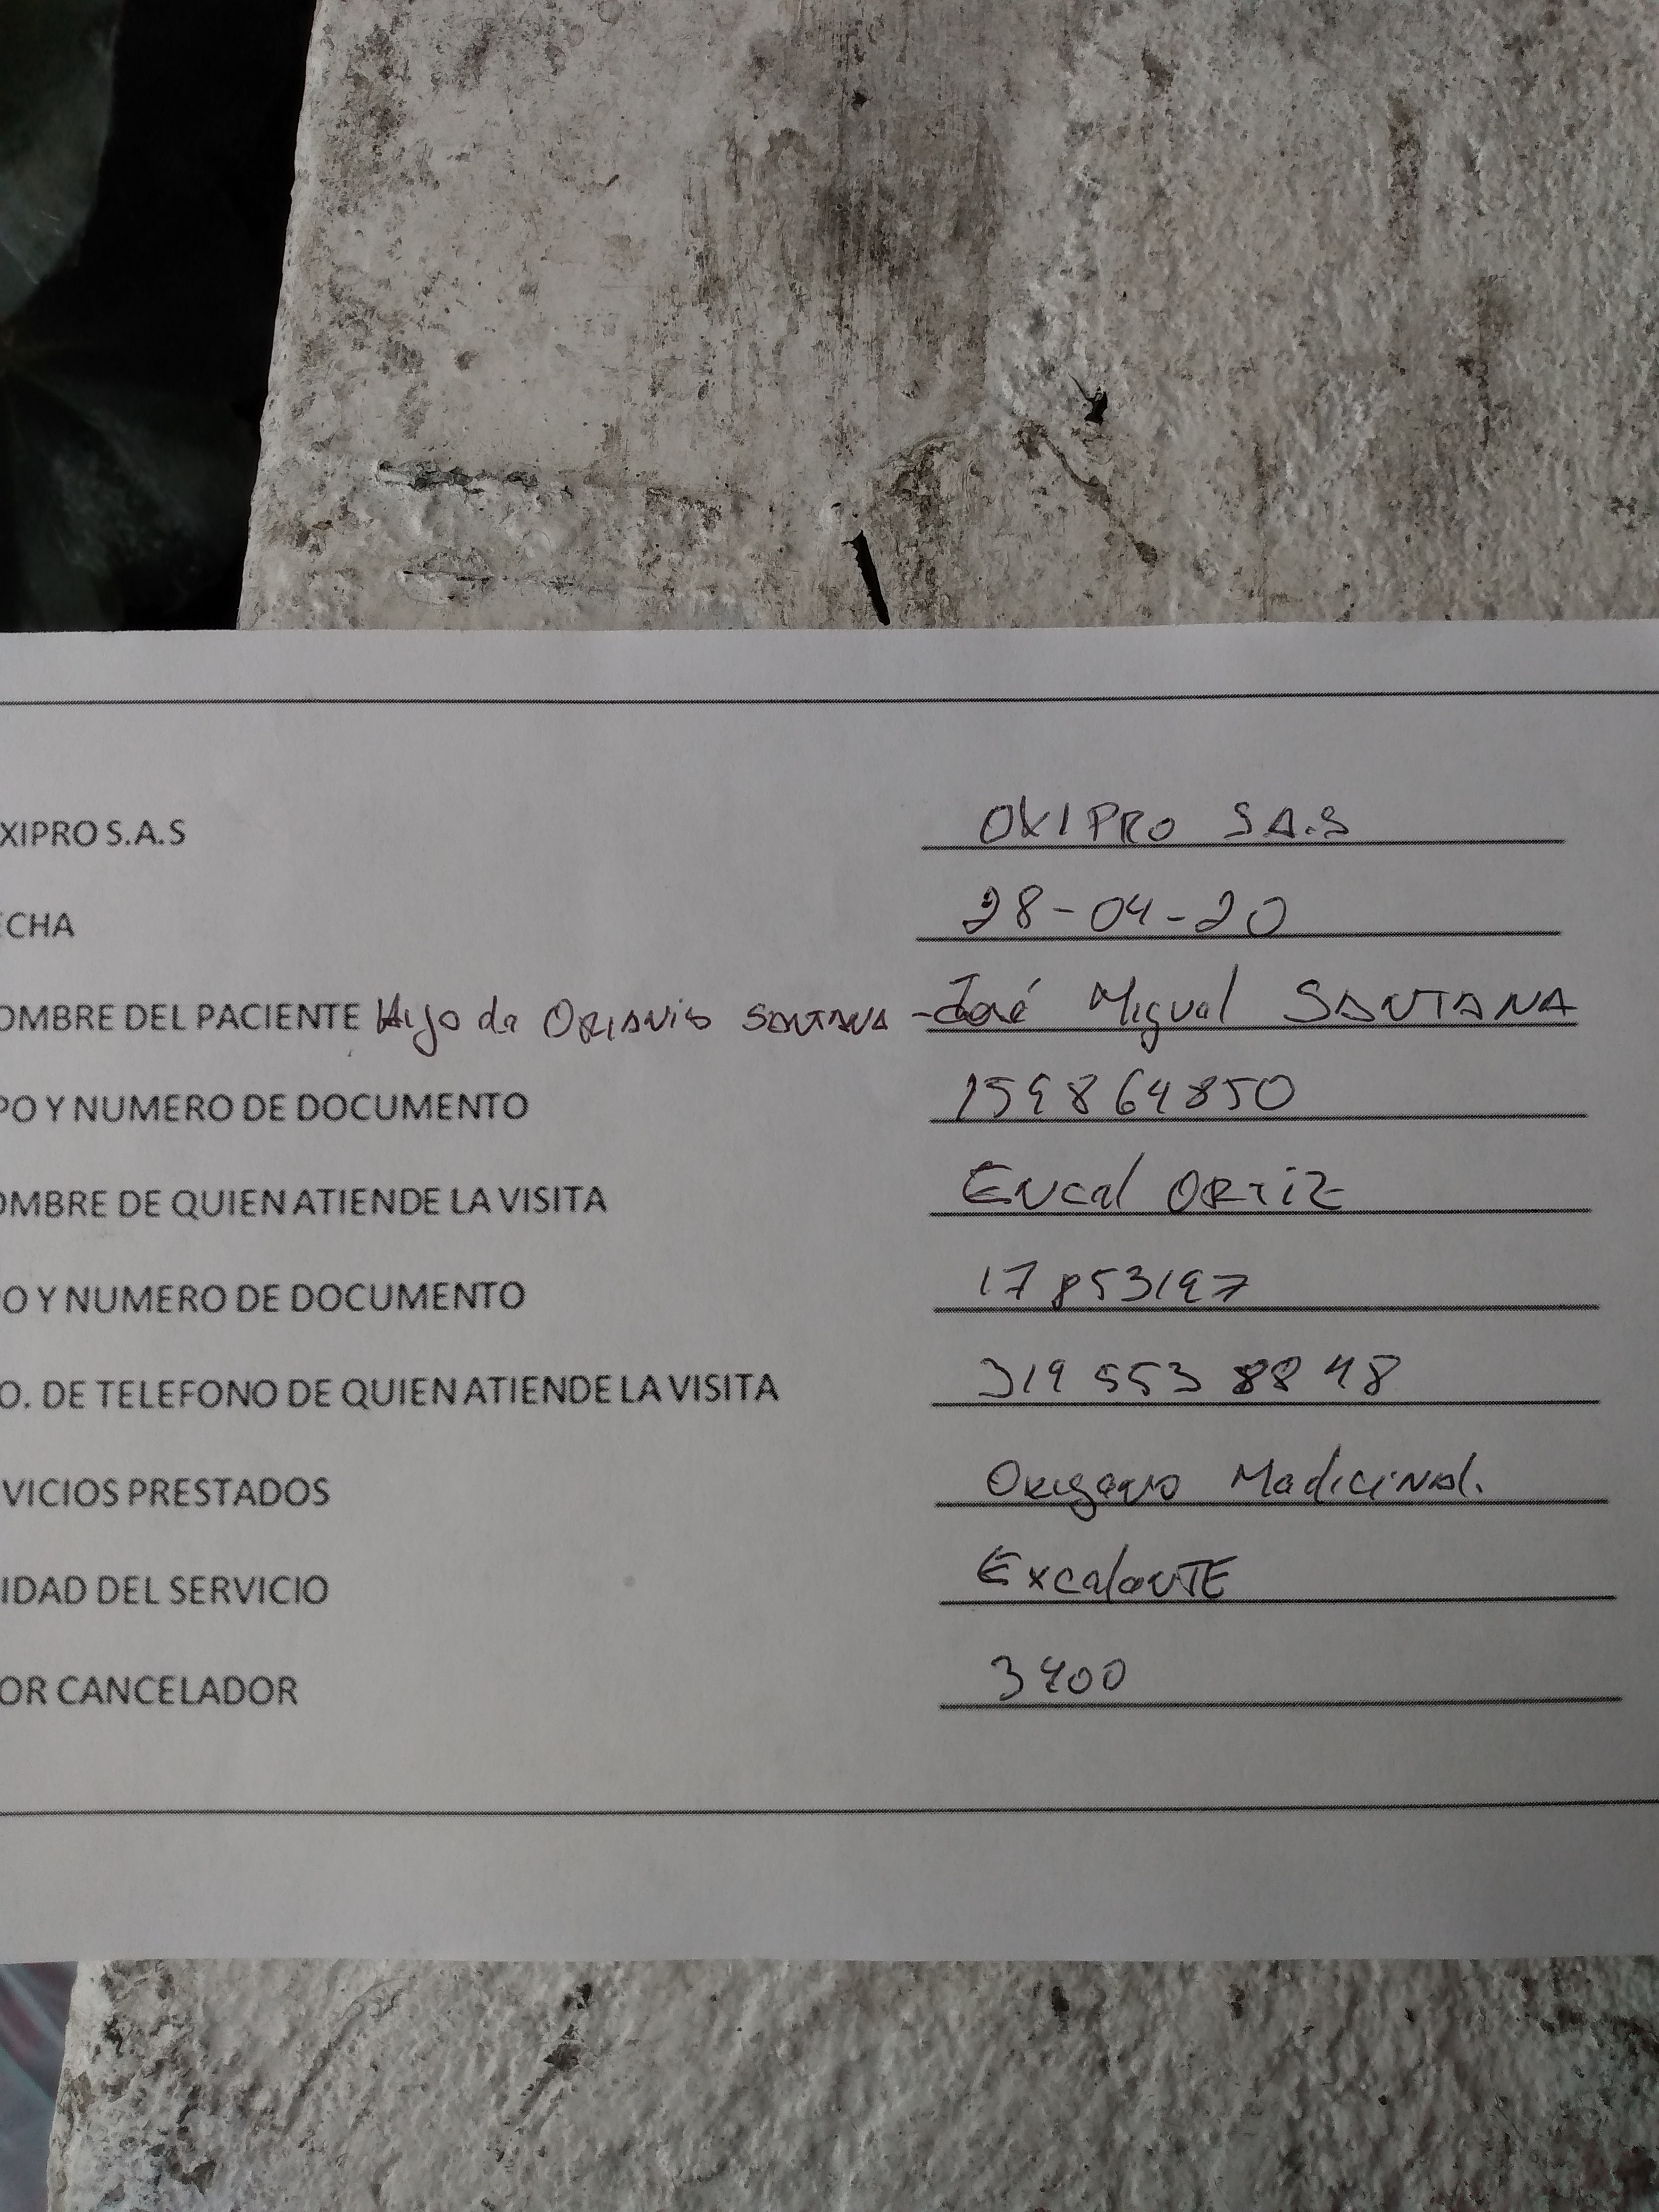 XIPRO S.A.S OXIPRO S.A.S
ECHA 28-04-20
OMBRE DEL PACIENTE Hijo de ORIANIS SANTANA - José Miguel SANTANA
PO Y NUMERO DE DOCUMENTO 159864850
OMBRE DE QUIEN ATIENDE LA VISITA ORTIZ
O Y NUMERO DE DOCUMENTO 17853197
O. DE TELEFONO DE QUIEN ATIENDE LA VISITA 319 553 8848
VICIOS PRESTADOS Medicinal.
IDAD DEL SERVICIO ExcelenTE
OR CANCELADOR 3400